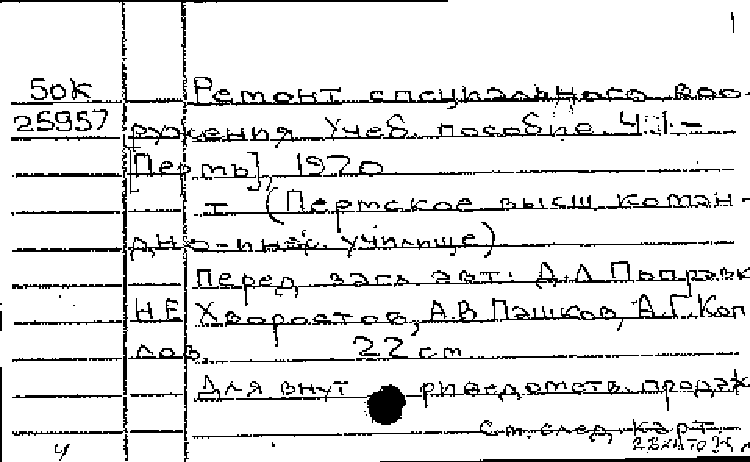 1
50К Ремонт специального воо-
25957 ружения Учеб. пособие. Ч 1-
[Пермь], 1970
I (Пермское высш. коман-
дно-инж. училище)
Перед загл. авт.: Д.Л Поправк
Н Е Хворостов, А.В Пашков, А.Г. Коп
лов. 22 см
Для внут риведомств. продаж
См. след. карт.
4